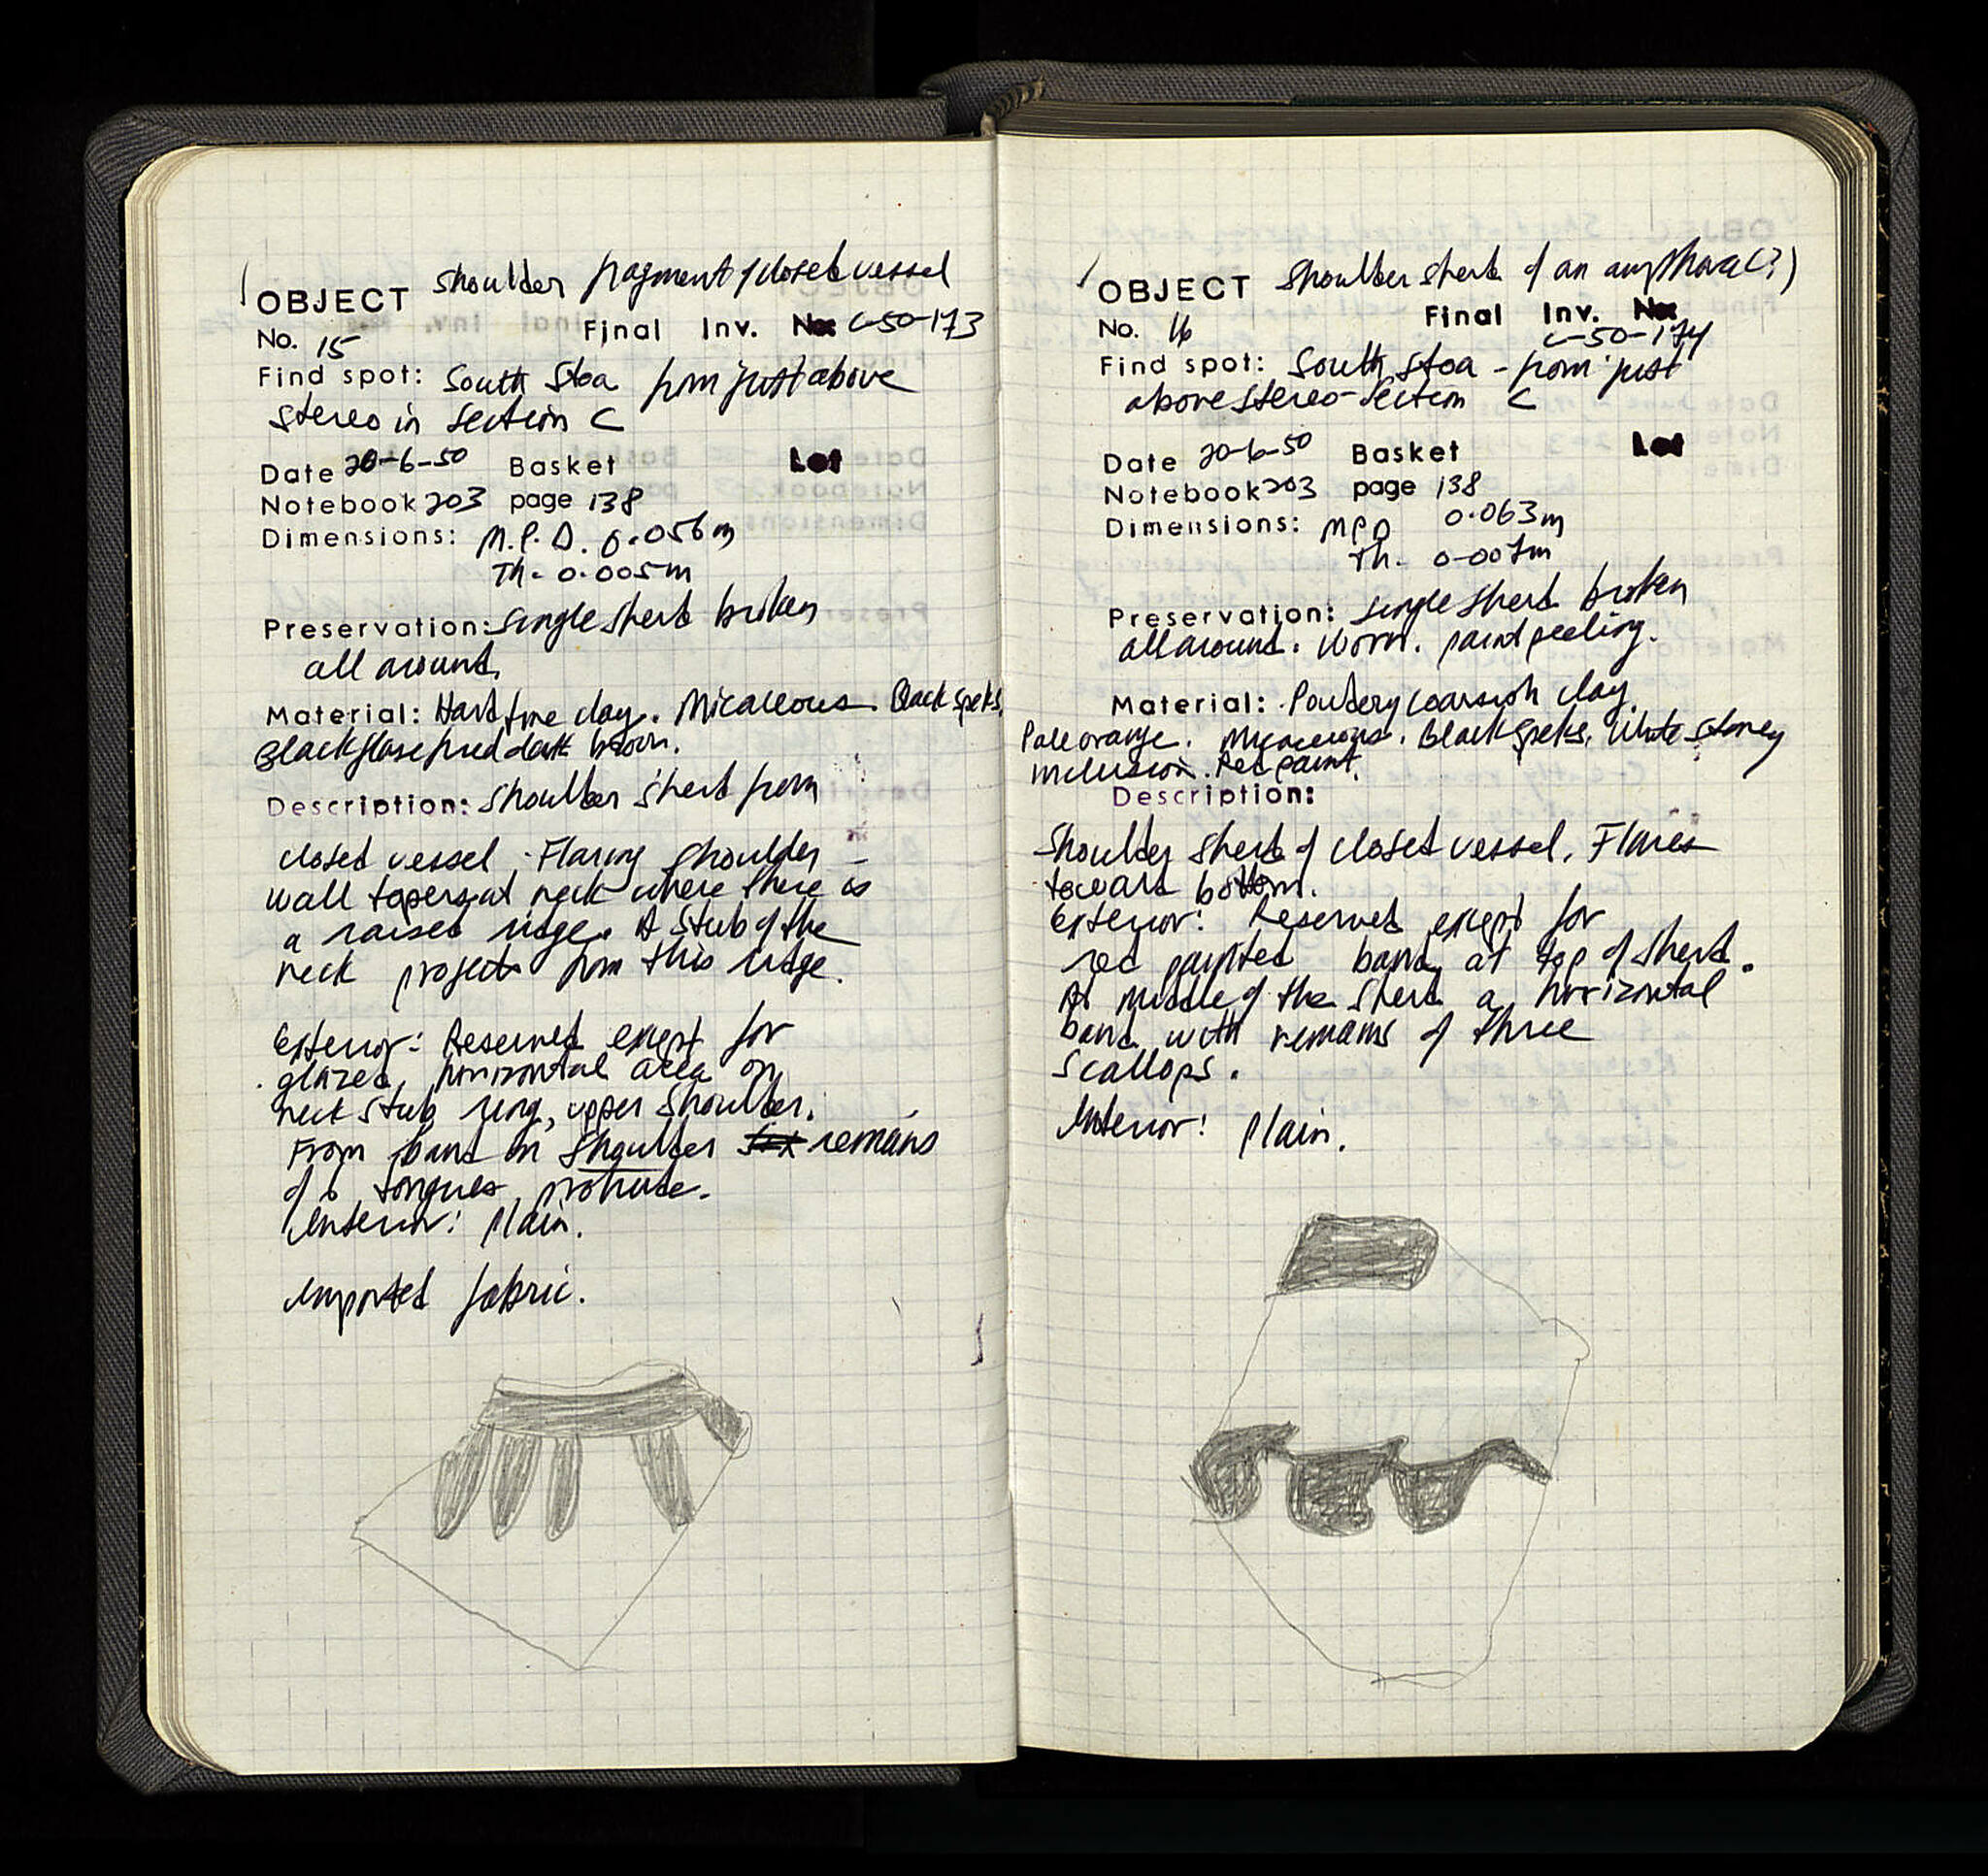 OBJECT shoulder fragment of closed vessel
No. 15 Final Inv. No C-50-173
Find spot: South Stoa from just above
stereo in Section C
Date 20-6-50 Basket Lot
Notebook 203 page 138
Dimensions: M.P.D. 0.056m
Th. 0.005m
Preservation: single sherd broken
all around.
Material: Hard fine clay. Micaceous. Black specks.
Black glaze fired dark brown.
Description: Shoulder sherd from
closed vessel. Flaring shoulder –
wall tapers at neck where there is
a raised ridge. A stub of the
neck projects from this ridge.
Exterior: Reserved except for
glazed, horizontal area on
neck stub, ring, upper shoulder.
From band on shoulder remains
of 6 tongues protrude.
Interior: Plain.
Imported fabric.
OBJECT Shoulder sherd of an amphora (?)
No. 16 Final Inv. No
C-50-174
Find spot: South Stoa - from just
above stereo - Section C
Date 20-6-50 Basket Lot
Notebook 203 page 138
Dimensions: MPD 0.063m
Th. 0.007m
Preservation: single sherd broken
all around. Worn. paint peeling.
Material: Powdery coarsish clay.
Pale orange. Micaceous. Black specks. White stoney
inclusion. Red paint.
Description:
Shoulder sherd of closed vessel. Flares
toward bottom.
Exterior: Reserved except for
red painted band at top of sherd.
At middle of the sherd a horizontal
band with remains of three
scallops.
Interior: Plain.